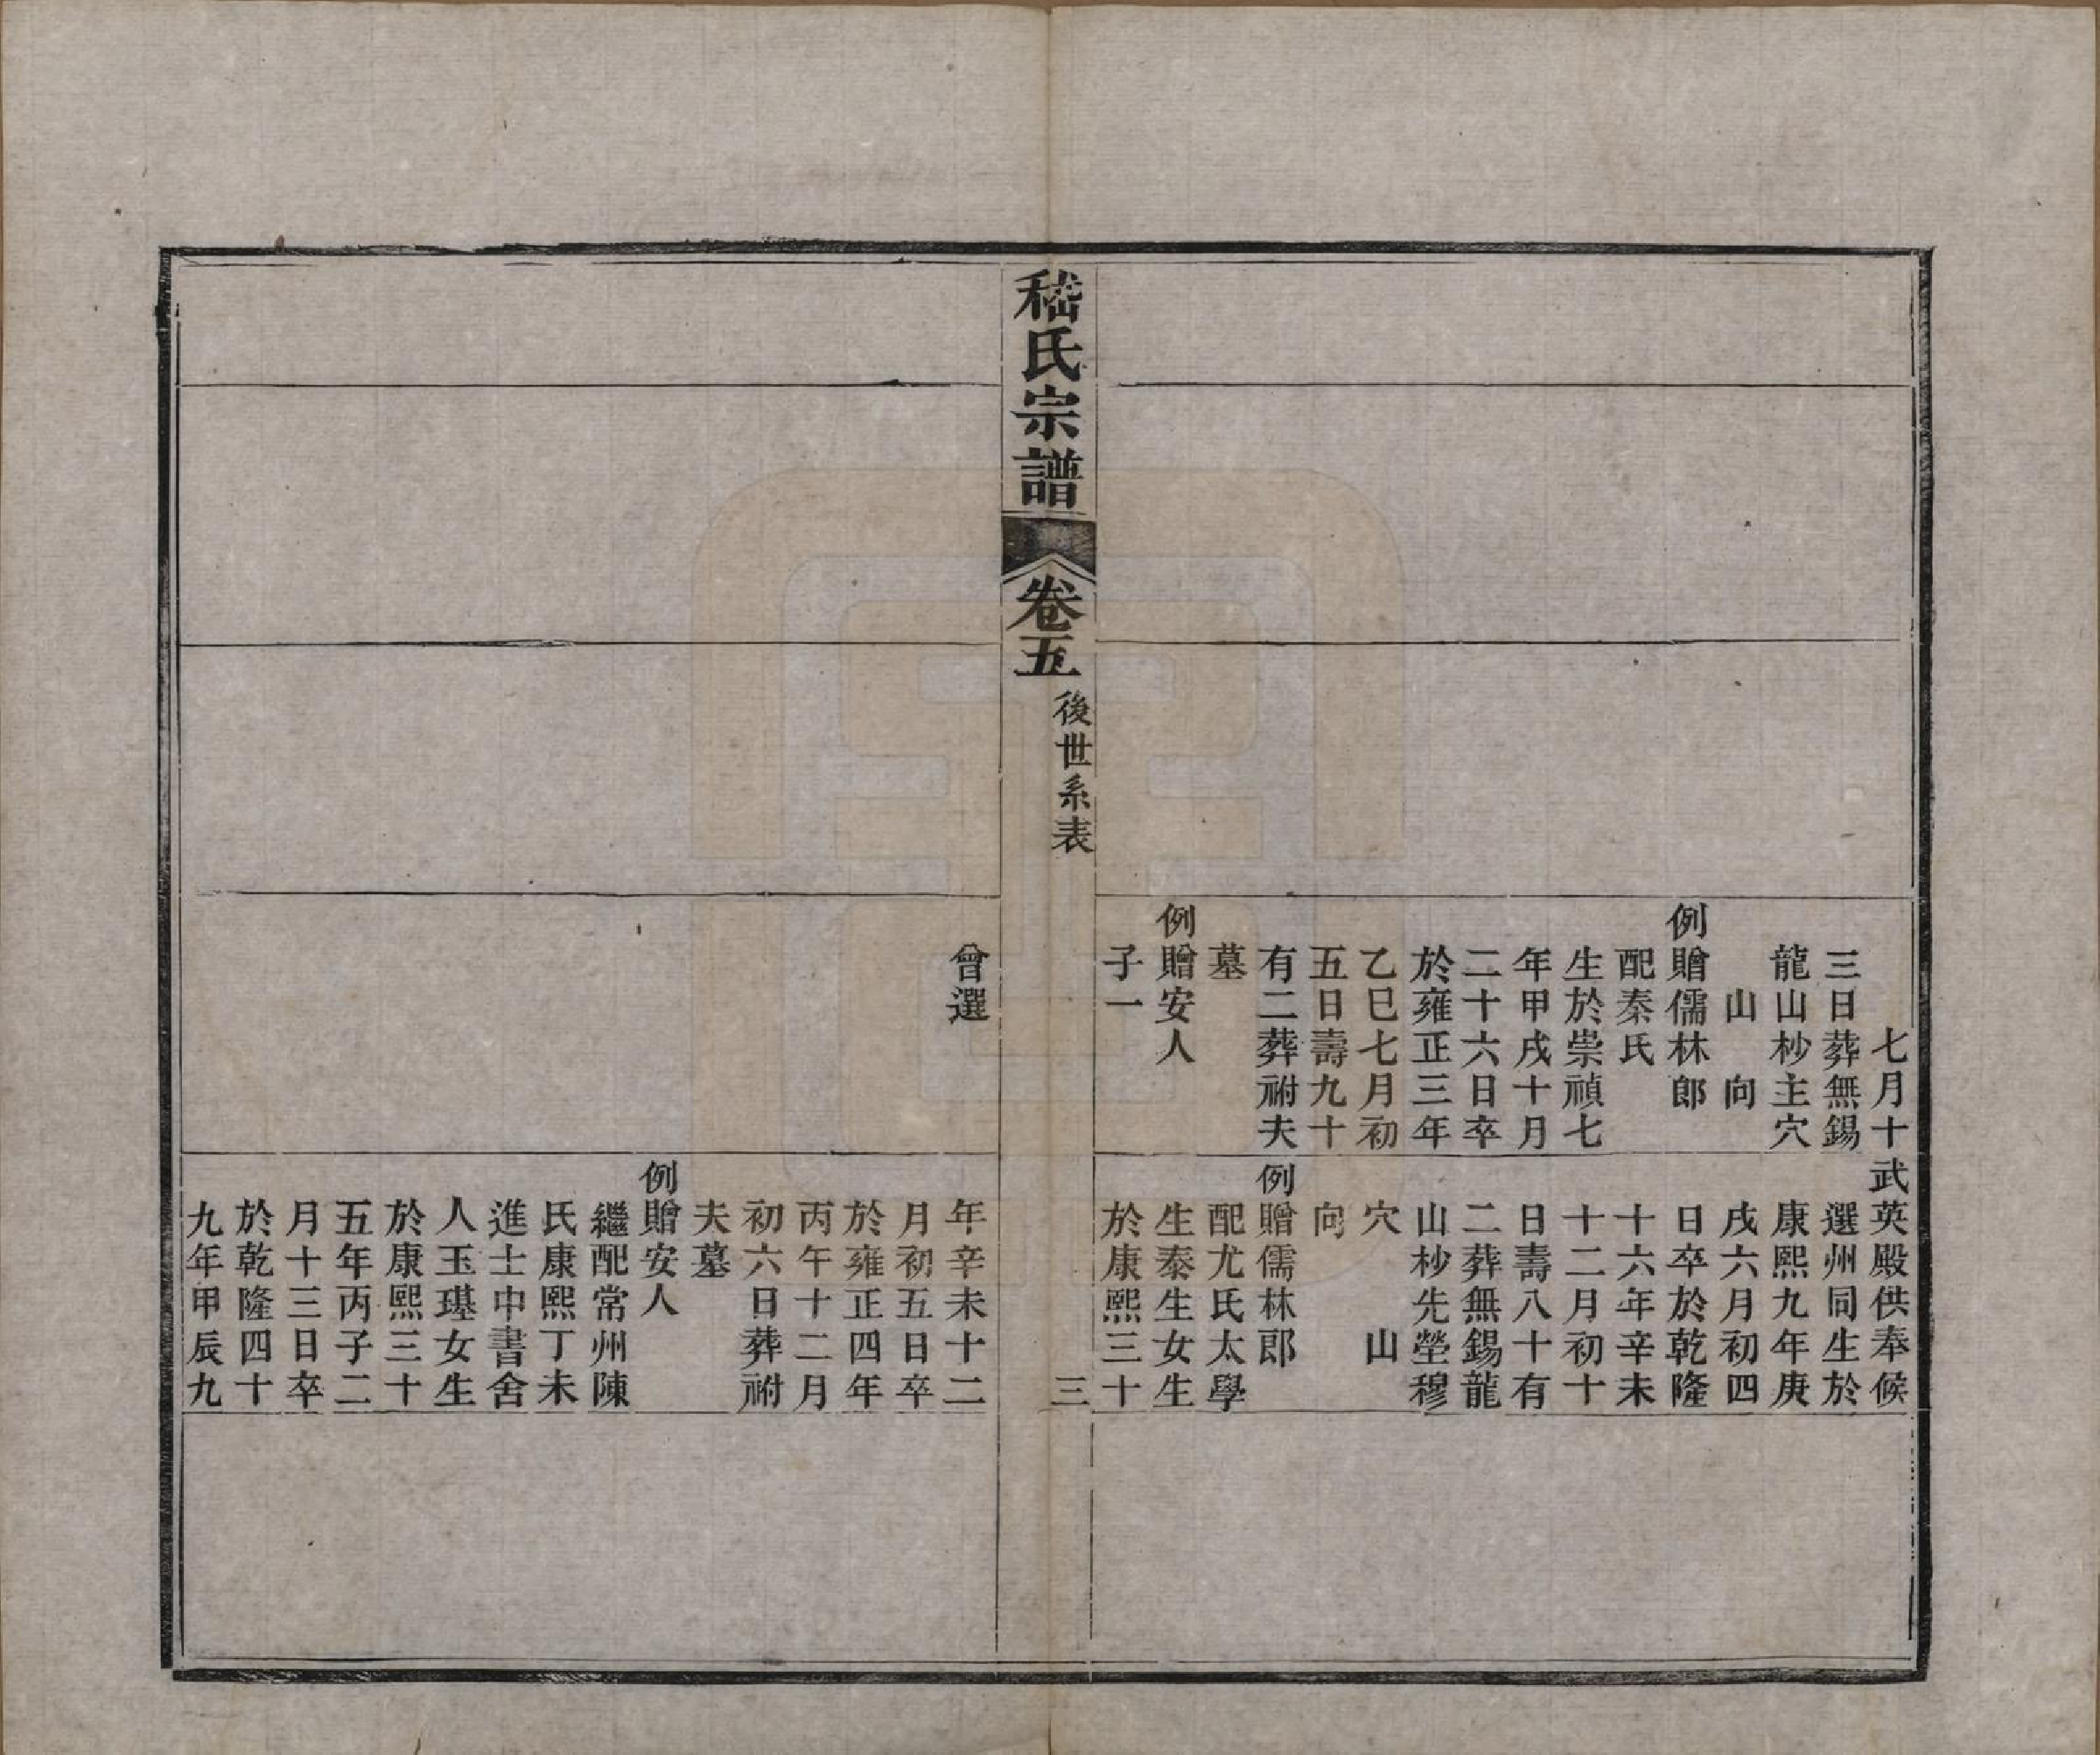 七月十
三日葬無錫
龍山杪主穴
山　向
例贈儒林郎
配秦氏
生於崇禎七
年甲戌十月
二十六日卒
於雍正三年
乙巳七月初
五日壽九十
有二葬祔夫
墓
例贈安人
子一
武英殿供奉候
選州同生於
康熙九年庚
戌六月初四
日卒於乾隆
十六年辛未
十二月初十
日壽八十有
二葬無錫龍
山杪先塋穆
穴　　山
向
例贈儒林郎
配尤氏太學
生泰生女生
於康熙三十
嵇氏宗譜
卷五
後世系表
三
曾選
年辛未十二
月初五日卒
於雍正四年
丙午十二月
初六日葬祔
夫墓
例贈安人
繼配常州陳
氏康熙丁未
進士中書舍
人玉璂女生
於康熙三十
五年丙子二
月十三日卒
於乾隆四十
九年甲辰九